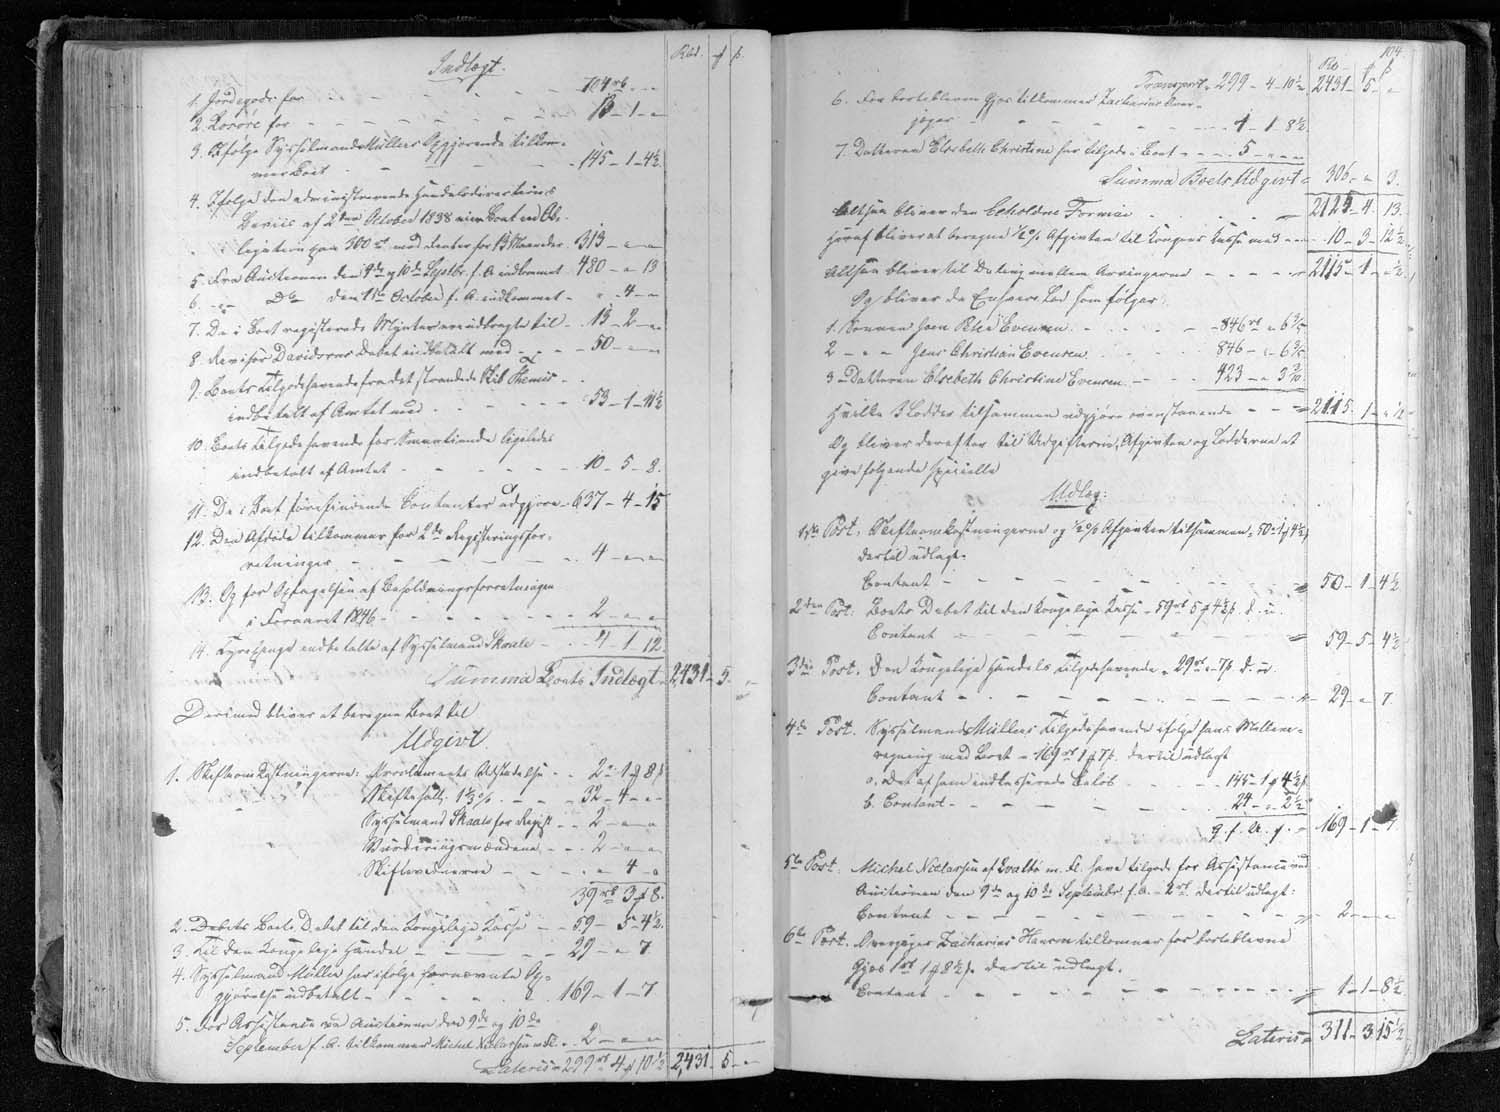 Indtægt.
Rbd. ƒ ß.
1. Jordegods for - - - - - 704 rb - -
2. Løsøre for - - - - - 13 - 1 - "
3. Ifølge Sysselmand Müllers Opgjørende tilkom-
mer Boet - - - 145 - 1 - 4½
4. Ifølge den administrerende Handelsdirecteurs
Beviis af 2den October 1838 ein Boet en Ob-
ligation paa 300 rd med Renter for 13 Maaneder - 313 - " - "
5. Fra Auctionen den 9de og 10de Septbr. f. A. indkommet - 480 - " - 13
6. - " - Do den 15de October f. A. indkommet - " - 4 - "
7. De i Boet registerede Mynter ere indbragte til - 13 - 2 - "
8. Revisor Davidsens Debet indbetalt med - - 50 - " - "
9. Boets Tilgodehavende fra det strandede Skib Themis
indbetalt af Amtet med - - - 53 - 1 - 11½
10. Boets Tilgodehavende for ligeledes
indbetalt af Amtet - - - 10 - 5 - 8.
11. De i Boet forefindende Contanter udgjøre - 637 - 4 - 15
12. Den Afdøde tilkommer for 2de Registeringsfor-
retninger - - - 4 - " - "
13. Og for Optagelsen af Beholdningsforretningen
i Foraaret 1846 - - - 2 - " - "
14. indbetalte af Sysselmand Skaale - 4 - 1 - 12.
Summa Boets Indtægt - 2,431 - 5 - "
Derimod bliver at beregne Boet til
Udgivt.
1. Skifteomkostningerne: Proclamets Udstedelse - - 2 - 1 ƒ 8 ß
Skiftesalt. 1⅓ % - - 32 - 4 - "
Sysselmand Skaale for Regist - - 2 - " - "
Vurderingsmændene - - 2 - " - "
Skiftevidnerne - - - " - 4 - "
39 rb 3 ƒ 8.
2. Debets Boets Debet til den Kongelige Kasse - 59 - 5 - 4½.
3. Til den Kongelige Handel - - - 29 - " - 7.
4. Sysselmand Müller har ifølge fornævnte Op-
gjørelse udbetalt - - - 169 - 1 - 7
5. For Assistance ved Auctionen den 9de og 10de
September f. A. tilkommer Michel Niclassen m. Fl. - 2 - " - "
Lateris = 299 rb 4 ƒ 10½ 2,431 - 5 - "
104.
Rb - ƒ ß
Transport - 299 - 4 - 10½ 2431 - 5 - "
6. For bortebleven Gjæs tilkommer Zacharias Over-
jøger - - - 1 - 1 - 8½
7. Datteren Elsebeth Christine har tilgode i Boet - - 5 - " - "
Summa Boets Udgivt = 306 - " - 3.
Altsaa bliver den Beholdne Formue - - 2125 - 4 - 13.
Heraf bliver at beregne ½ % Afgivten til Kongens Kasse med - - 10 - 3 - 12½
Altsaa bliver til Deling mellem Arvingerne - - - 2115 - 1 - " ½
Og bliver da Enhvers Lod som følger:
1. Sønnen Joen Evensen - - - 846 rd " 6 3/5
2 - " - Jens Christian Evensen - - 846 - " - 6 3/5
3 - Datteren Elsebeth Christine Evensen - - 423 - " 3 3/10
Hvilke 3 Lodder tilsammen udgjøre ovenstaaende - - = 2115. 1 - " ½
Og bliver derefter til Udgifterne, Afgivten og Lodderne at
give følgende specielle
Udlæg:
1ste Post. Skifteomkostningerne og ½ % Afgivten tilsammen, 50 rb 1 ƒ 4½ ß
dertil udlagt.
Contant - - - - = 50 - 1 - 4½
2den Post: Boets Debet til den Kongelige Kasse - 59 rb 5 ƒ 4½ ß d. u.
Contant - - - = 59 - 5 - 4½
3die Post. Den Kongelige Handels Tilgodehavende - 29 rb " - 7 ß d. u.
Contant - - - = 29 - " 7.
4de Post. Sysselmand Müllers Tilgodehavende ifølge hans Mellem-
regning med Boet - 169 rb 1 ƒ 7 ß. dertil udlagt
a. det af ham indkasserede Beløb - - - 145 - 1 ƒ 4½ ß
b. Contant - - - 24 - " 2½
q. f. u. f. = 169 - 1 - 7
5te Post. Michel Niclassen af Qvalbø m. Fl. have tilgode for Assistance ved
Auctionen den 9de og 10de Septembr. f. A. - 2 rb. dertil udlagt:
Contant - - - = 2 - " - "
6te Post. Overjøger Zacharias Hansen tilkommer for bortblevne
Gjæs 1 rb 1 ƒ 8½ ß. dertil udlagt.
Contant - - - = 1 - 1 - 8½
Lateris = 311 - 3 15½